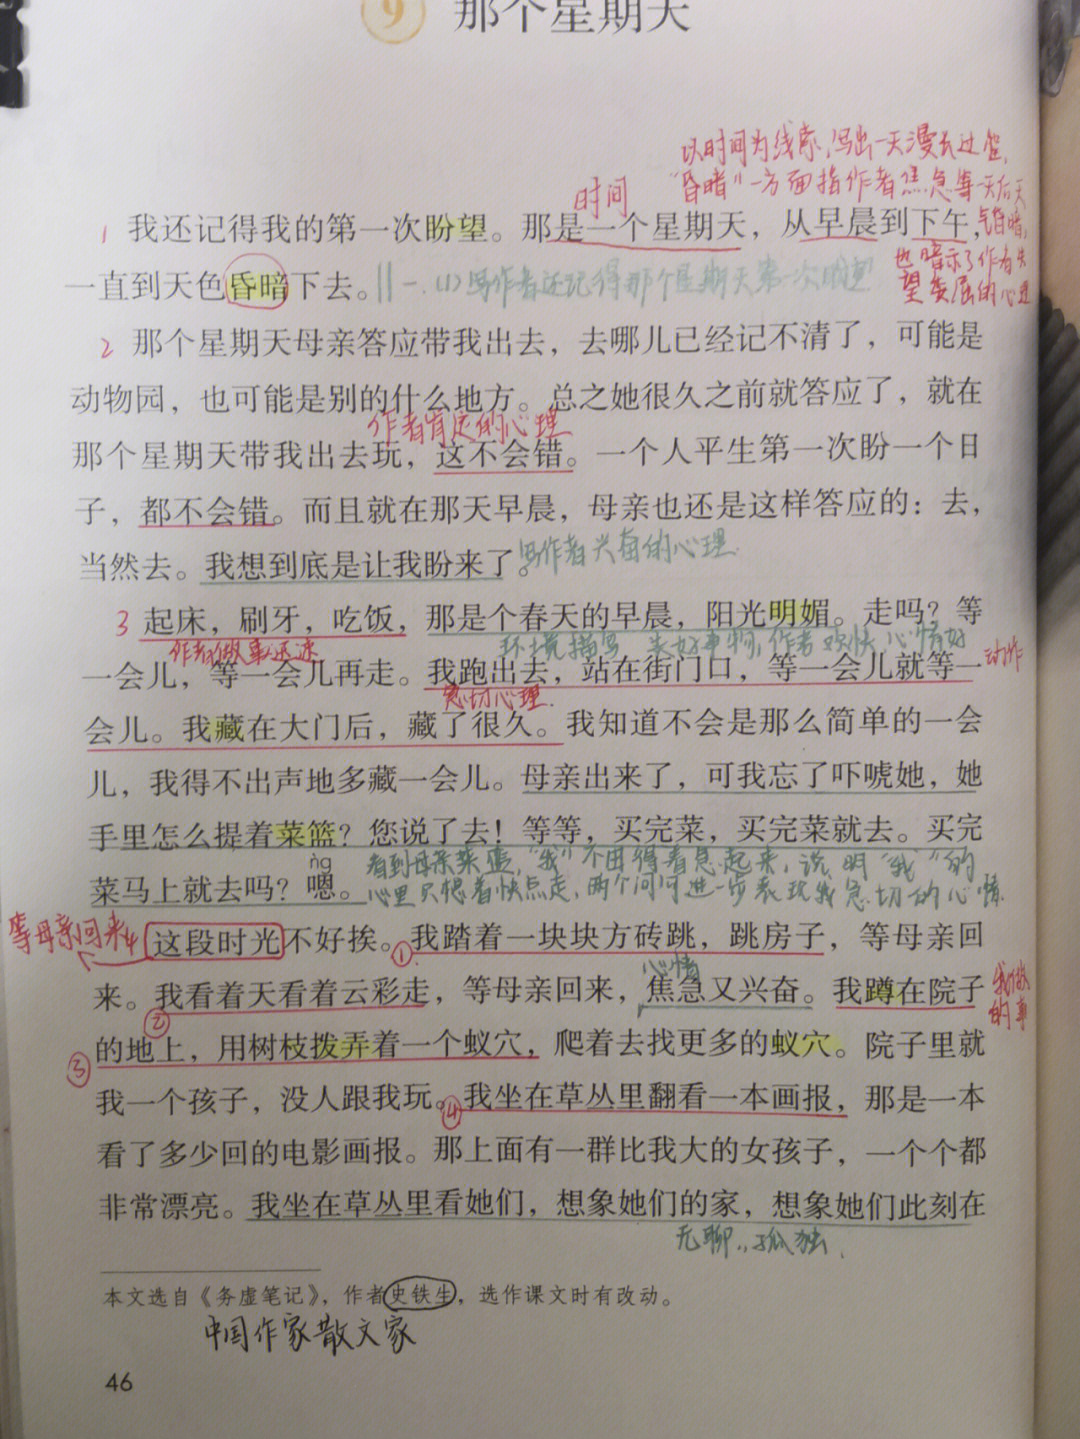 9 那个星期天
以时间为线索,写出一天漫长过程,
时间 “昏暗”一方面指作者焦急等一天后天
1 我还记得我的第一次盼望。那是一个星期天，从早晨到下午，
色昏暗,
也暗示了作者失
一直到天色昏暗下去。‖一.(1)写作者还记得那个星期天第一次盼望
望委屈的心理
2 那个星期天母亲答应带我出去，去哪儿已经记不清了，可能是
动物园，也可能是别的什么地方。总之她很久之前就答应了，就在
作者肯定的心理
那个星期天带我出去玩，这不会错。一个人平生第一次盼一个日
子，都不会错。而且就在那天早晨，母亲也还是这样答应的：去，
当然去。我想到底是让我盼来了。写作者兴奋的心理
3 起床，刷牙，吃饭，那是个春天的早晨，阳光明媚。走吗？等
作者做事迅速 环境描写 美好事物,作者欢快,心情好
一会儿，等一会儿再走。我跑出去，站在街门口，等一会儿就等一 动作
急切心理.
会儿。我藏在大门后，藏了很久。我知道不会是那么简单的一会
儿，我得不出声地多藏一会儿。母亲出来了，可我忘了吓唬她，她
手里怎么提着菜篮？您说了去！等等，买完菜，买完菜就去。买完
ǹg 看到母亲菜篮,“我”不由得着急起来,说明“我”的
菜马上就去吗？嗯。心里只想着快点走,两个问句进一步表现我急切的心情
等母亲回来 这段时光不好挨。①我踏着一块块方砖跳，跳房子，等母亲回
心情
来。②我看着天看着云彩走，等母亲回来，焦急又兴奋。我蹲在院子 我所做的事
③的地上，用树枝拨弄着一个蚁穴，爬着去找更多的蚁穴。院子里就
我一个孩子，没人跟我玩。④我坐在草丛里翻看一本画报，那是一本
看了多少回的电影画报。那上面有一群比我大的女孩子，一个个都
非常漂亮。我坐在草丛里看她们，想象她们的家，想象她们此刻在
无聊,孤独.
本文选自《务虚笔记》，作者史铁生，选作课文时有改动。
中国作家散文家
46